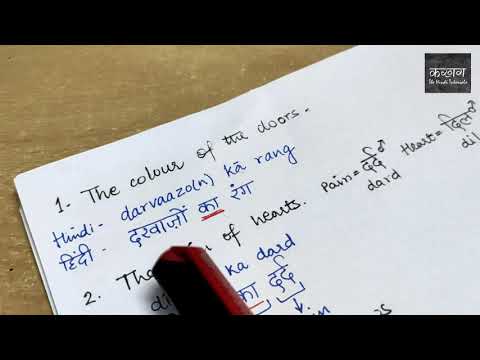 कखग
The Hindi Tutorials
1. The colour of the doors.
Hindi - darvaazo(n) kā rang
हिंदी - दरवाज़ों का रंग
2. The of hearts.
ka dard
का दर्द
Pain = दर्द♂
dard
Heart = दिल♂
dil